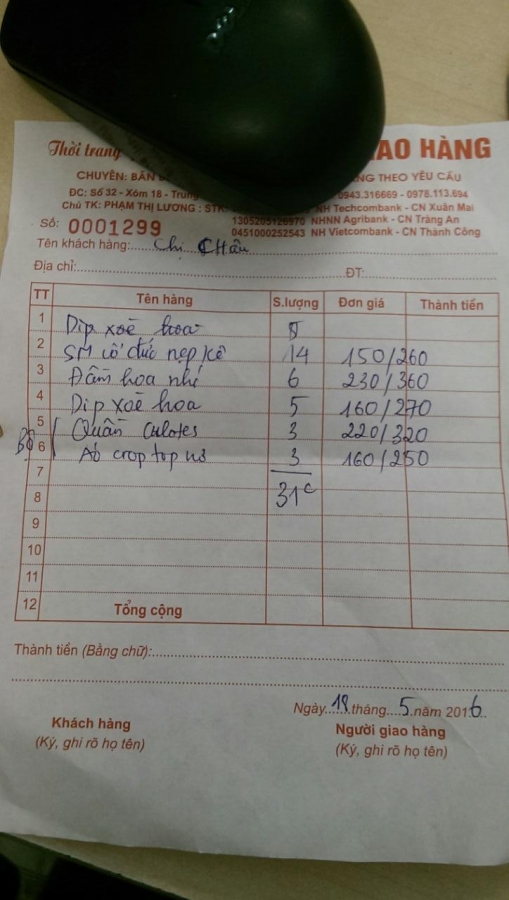 Thời trang
AO HÀNG
CHUYÊN: BÁN
NG THEO YÊU CẦU
ĐC: Số 32 - Xóm 18 - Trung
0943.316669 - 0978.113.694
Chủ TK: PHẠM THỊ LƯƠNG : STK
NH Techcombank - CN Xuân Mai
Số: 0001299
1305205126970 NHNN Agribank - CN Tràng An
0451000252543 NH Vietcombank - CN Thành Công
Tên khách hàng: Chị CHâu
Địa chỉ: ĐT:
TT Tên hàng S.lượng Đơn giá Thành tiền
1 Díp xoè hoa
2 SM cổ đức nẹp kẻ 14 150/260
3 Đầm hoa nhí 6 230/360
4 Díp xoè hoa 5 160/270
5 Quần culotes 3 220/320
Bộ 6 Áo crop top 3 160/250
7
8 31c
9
10
11
12 Tổng cộng
Thành tiền (Bằng chữ):
Ngày 18 tháng 5 năm 2016
Khách hàng Người giao hàng
(Ký, ghi rõ họ tên) (Ký, ghi rõ họ tên)